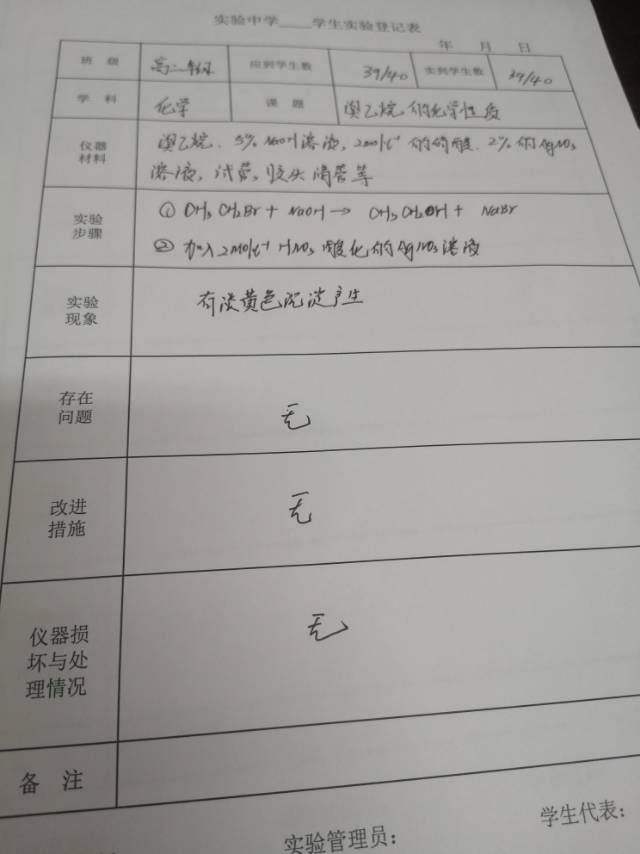 实验中学____学生实验登记表
年 月 日
班 级 高二 应到学生数 39/40 实到学生数 39/40
学 科 化学 课 题 溴乙烷的化学性质
仪器材料 溴乙烷、5% NaOH溶液,2mol·L⁻¹的硝酸、2%的AgNO₃
溶液,试管,胶头滴管等
实验步骤 ① CH₃CH₂Br + NaOH → CH₃CH₂OH + NaBr
② 加入2mol·L⁻¹ HNO₃酸化的AgNO₃溶液
实验现象 有淡黄色沉淀产生
存在问题 无
改进措施 无
仪器损坏与处理情况 无
备 注
实验管理员: 学生代表: